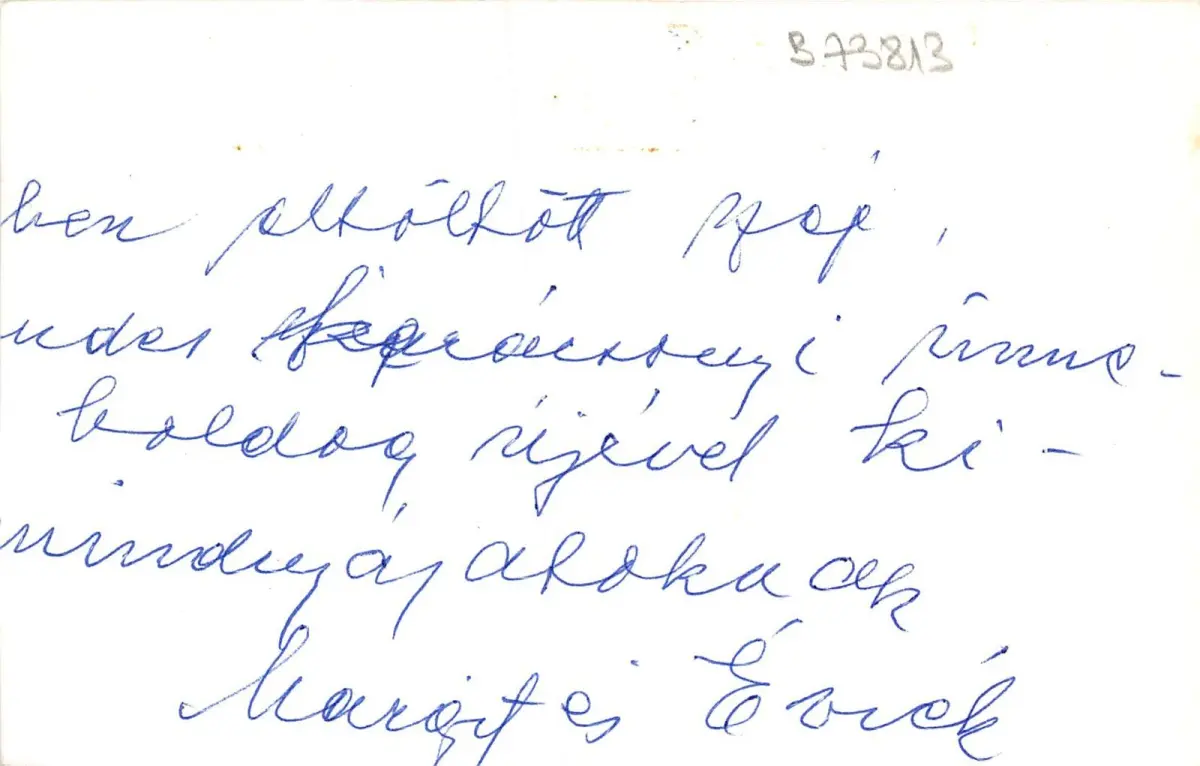 B 73813
ben eltöltött szép,
ndes karácsonyi ünne-
boldog újévet ki-
mindnyájatoknak
Margit és Éviék